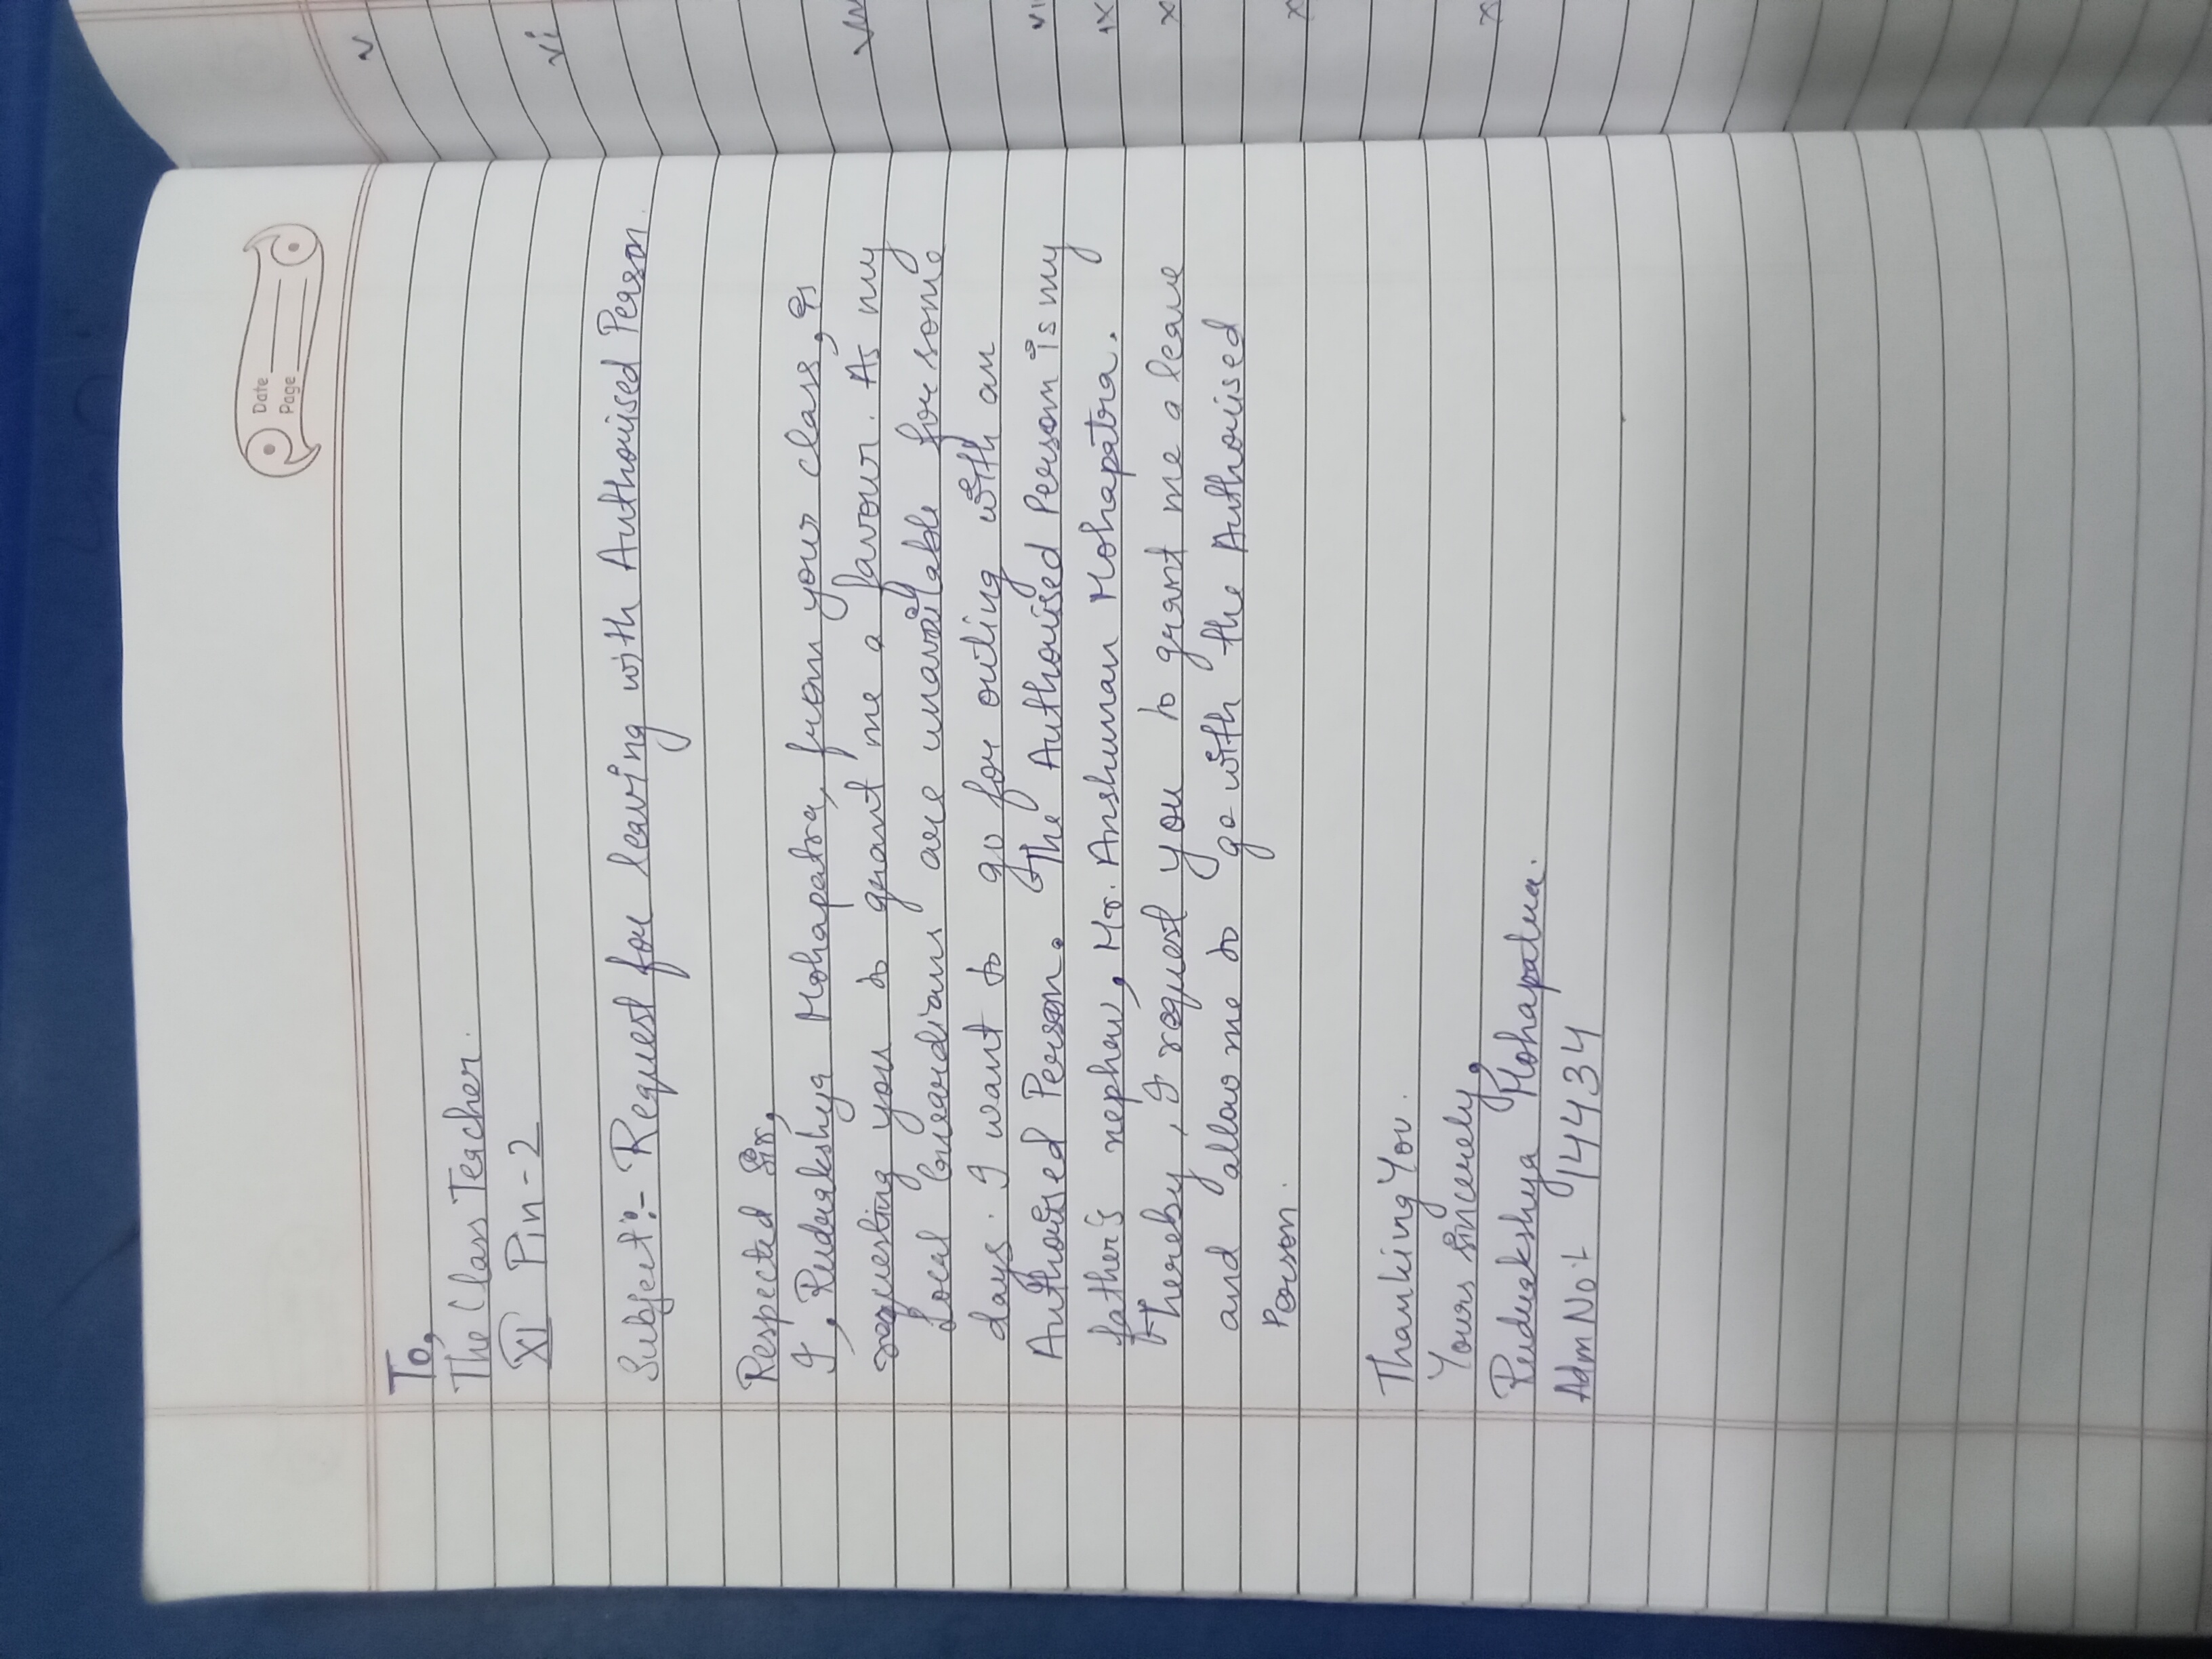 Date
Page
To,
The Class Teacher.
XI Pin-2
Subject:- Request for leaving with Authorised Person.
Respected Sir,
I, Rudrakshya Mohapatra, from your class, is
requesting you to grant me a favour. As my
Local Guardians are unavailable for some
days. I want to go for outing with an
Authorised Person. The Authorised Person is my
father's nephew, Mr. Anshuman Mohapatra.
Thereby, I request you to grant me a leave
and allow me to go with the Authorised
Person.
Thanking You.
Yours Sincerely,
Rudrakshya Mohapatra.
Adm No:- 14434
v
vi
ix
x
x
x